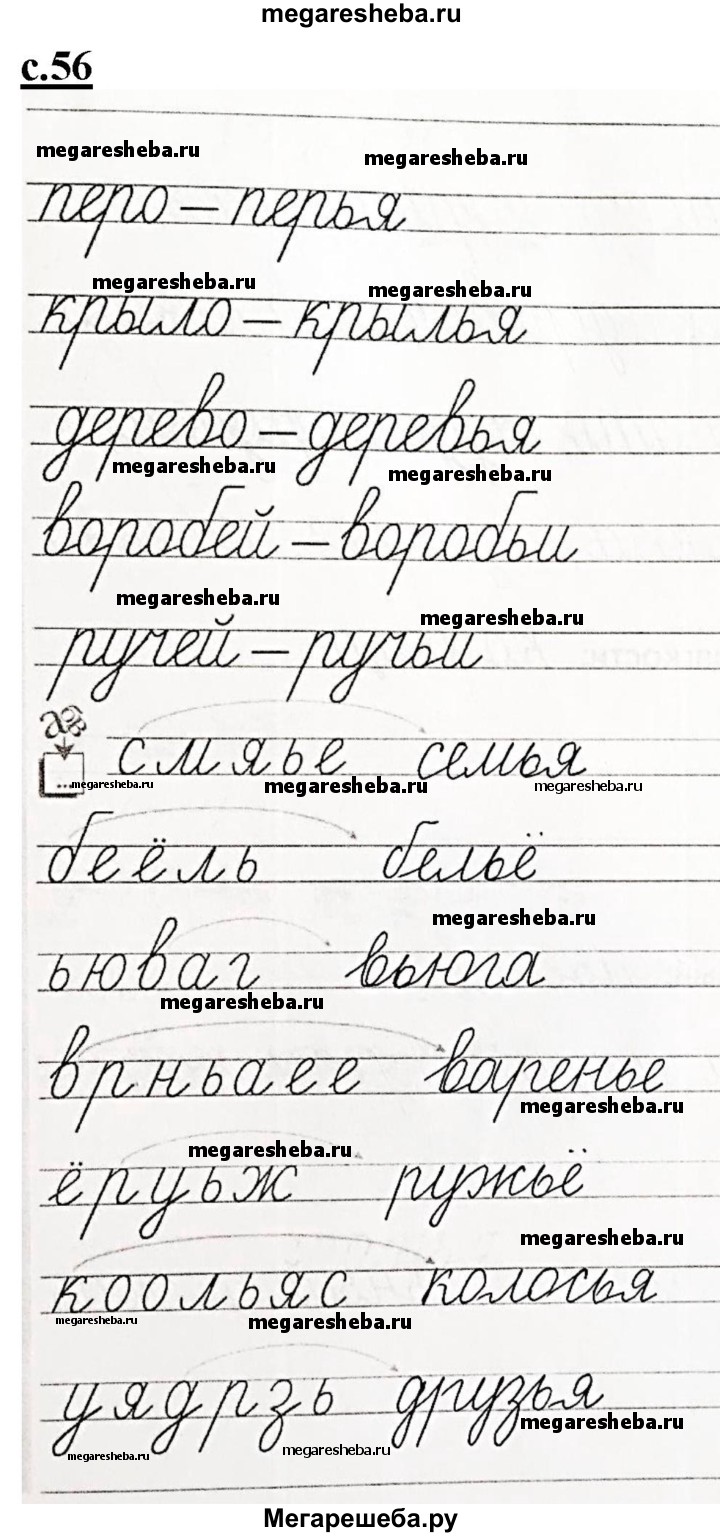 megaresheba.ru
с.56
megaresheba.ru megaresheba.ru
перо – перья
megaresheba.ru megaresheba.ru
крыло – крылья
дерево – деревья
megaresheba.ru megaresheba.ru
воробей – воробьи
megaresheba.ru megaresheba.ru
ручей – ручьи
смяье семья
...megaresheba.ru megaresheba.ru megaresheba.ru
беёль бельё
megaresheba.ru
ьюваг вьюга
megaresheba.ru
врньаее варенье
megaresheba.ru
megaresheba.ru
ёруьж ружьё
megaresheba.ru
коольяс колосья
megaresheba.ru megaresheba.ru
уядрзь друзья
megaresheba.ru megaresheba.ru megaresheba.ru
Мегарешеба.ру